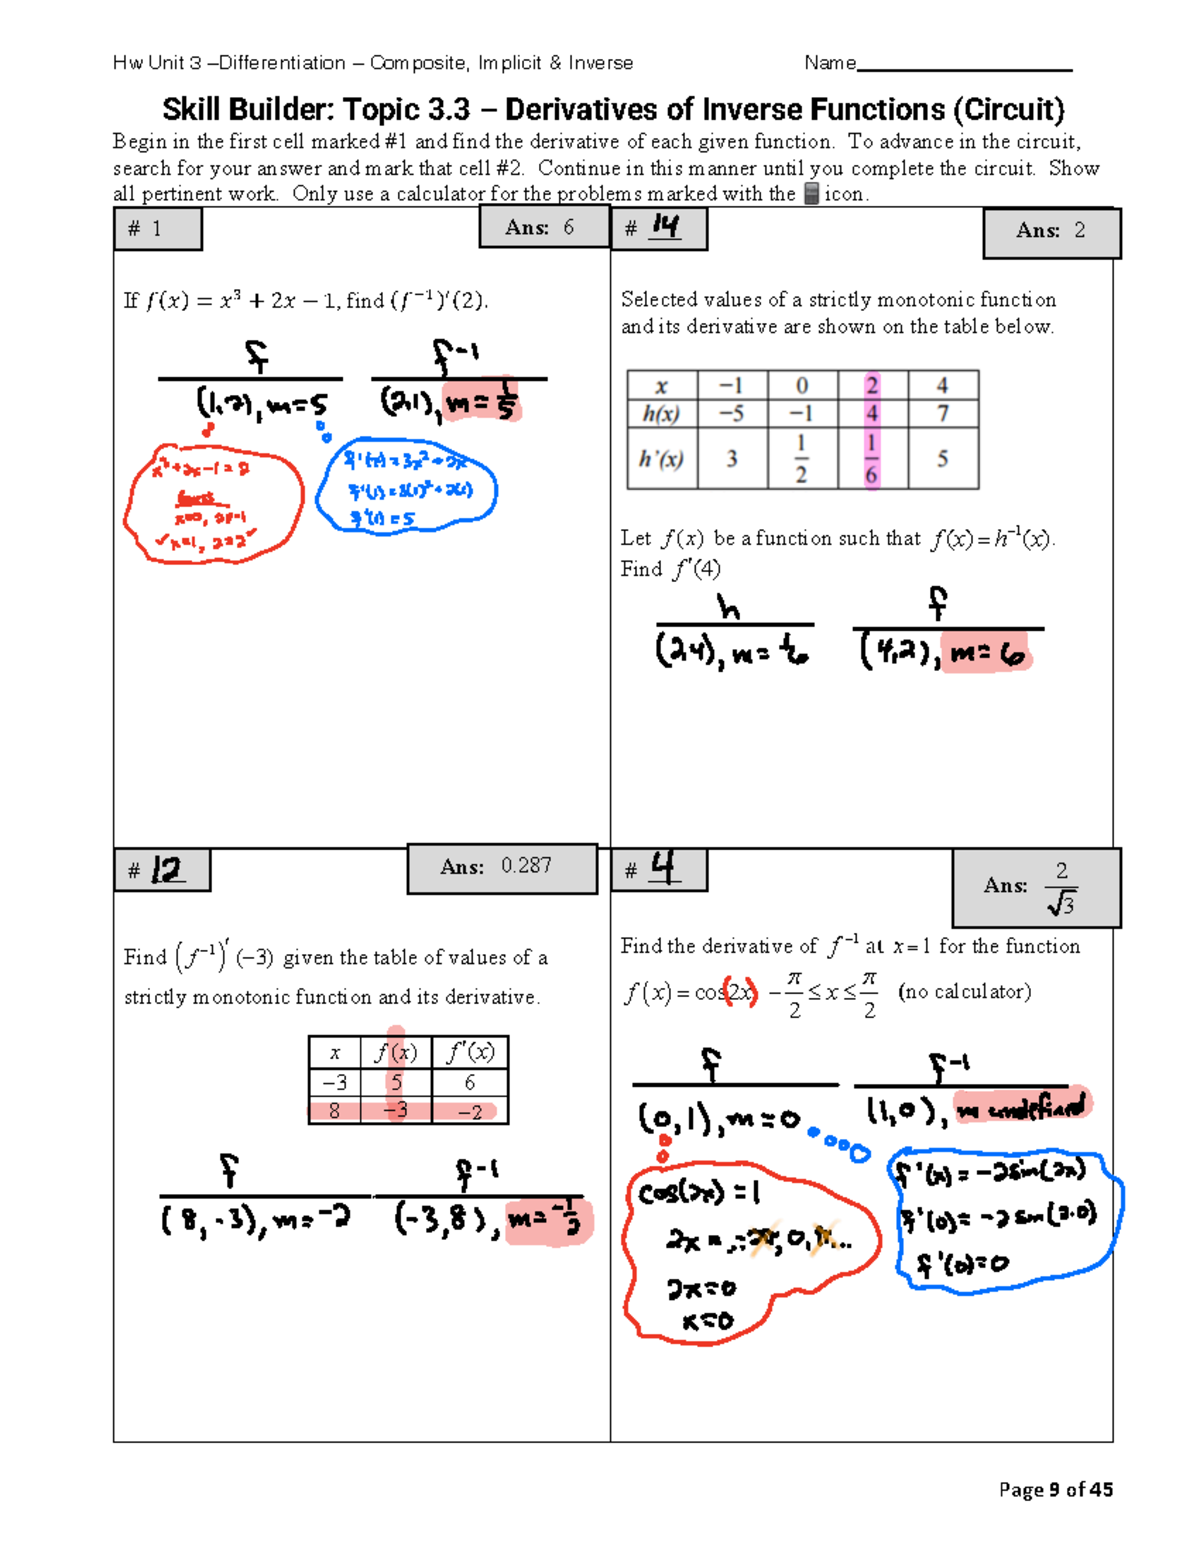 Hw Unit 3 –Differentiation – Composite, Implicit & Inverse Name
Skill Builder: Topic 3.3 – Derivatives of Inverse Functions (Circuit)
Begin in the first cell marked #1 and find the derivative of each given function. To advance in the circuit,
search for your answer and mark that cell #2. Continue in this manner until you complete the circuit. Show
all pertinent work. Only use a calculator for the problems marked with the icon.
# 1
Ans: 6
If f(x) = x³ + 2x − 1, find (f⁻¹)′(2).
f f⁻¹
(1,2), m=5 (2,1), m = 1/5
x³+2x−1=2
Guess
x=0, 2≠−1
✓x=1, 2=2✓
f'(x)=3x²+2x
f'(1)=3(1)²+2(1)
f'(1)=5
# 14
Ans: 2
Selected values of a strictly monotonic function
and its derivative are shown on the table below.
x −1 0 2 4
h(x) −5 −1 4 7
h’(x) 3 1/2 1/6 5
Let f(x) be a function such that f(x) = h⁻¹(x).
Find f′(4)
h f
(2,4), m = 1/6 (4,2), m = 6
# 12
Ans: 0.287
Find (f⁻¹)′(−3) given the table of values of a
strictly monotonic function and its derivative.
x f(x) f′(x)
−3 5 6
8 −3 −2
f f⁻¹
(8,-3), m=-2 (-3,8), m=-1/2
# 4
Ans: 2/√3
Find the derivative of f⁻¹ at x=1 for the function
f(x) = cos(2x) −π/2 ≤ x ≤ π/2 (no calculator)
f f⁻¹
(0,1), m=0 (1,0), m undefined
cos(2x)=1
2x = ...-2π, 0, ...
2x=0
x=0
f'(x) = -2sin(2x)
f'(0) = -2sin(2·0)
f'(0)=0
Page 9 of 45